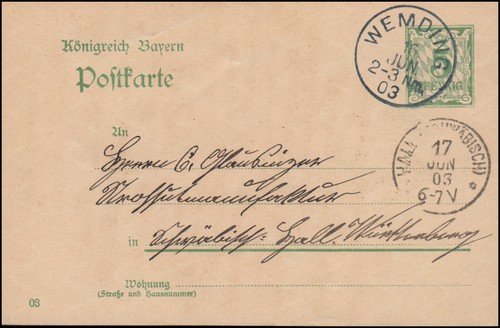 Königreich Bayern
Postkarte
WEMDING
16
JUN
2-3 Nm
03
5
PFENNIG
HALL (SCHWÄBISCH)
17
JUN
03
6-7 V
An
Herrn C.
in Schwäbisch-Hall. Württemberg
Wohnung
(Straße und Hausnummer)
03